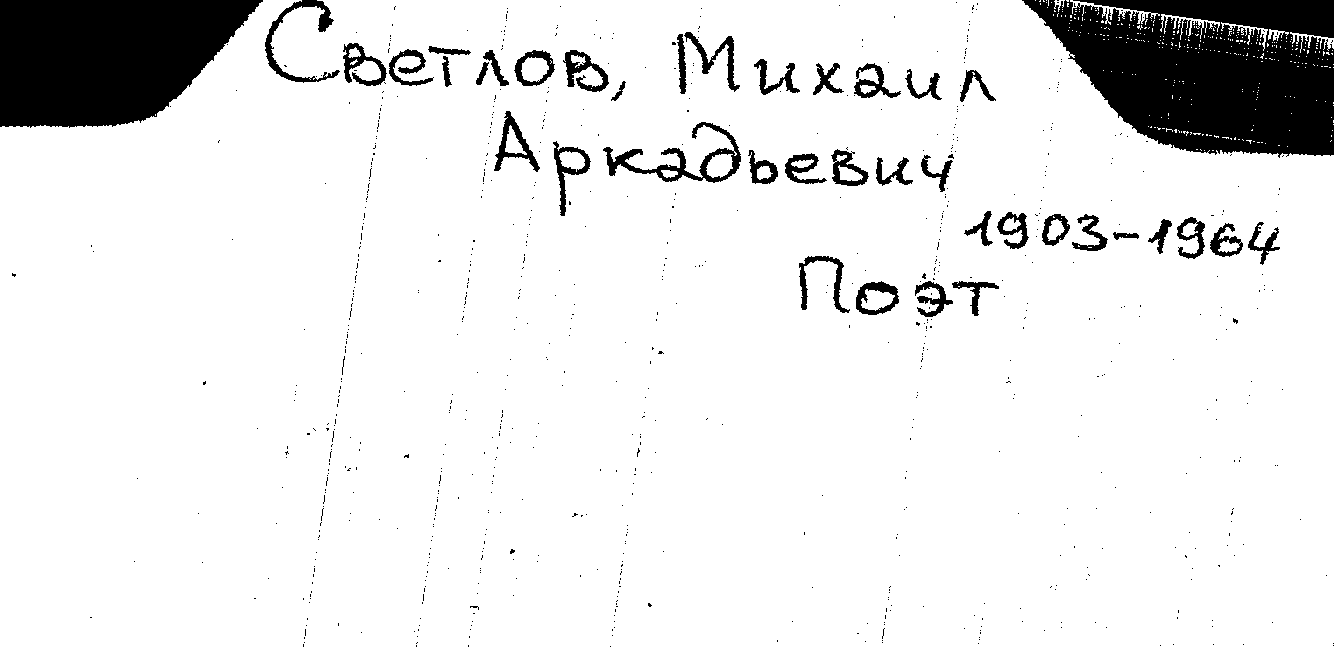 Светлов, Михаил
Аркадьевич
1903-1964
Поэт